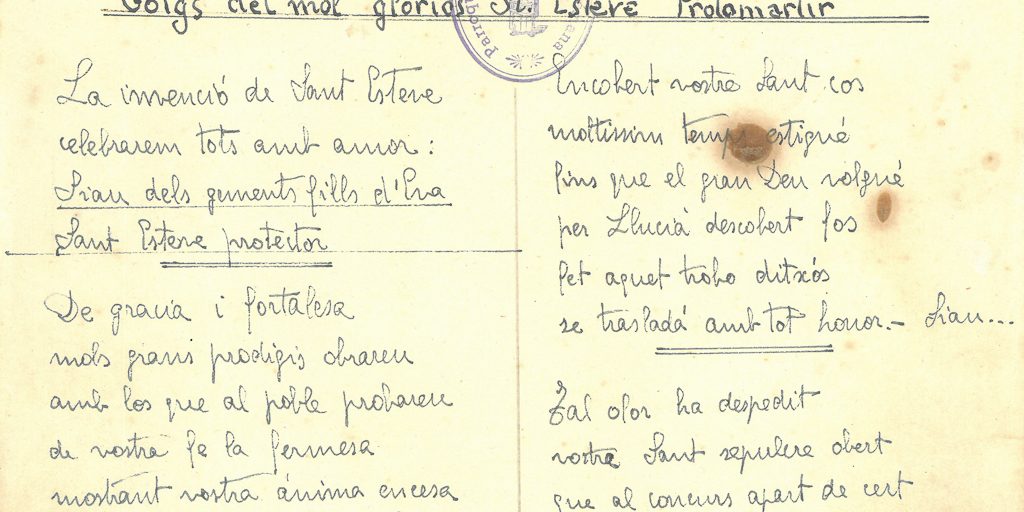 Goigs del molt gloriós St. Esteve Protomartir
Parroq
ana
La invenció de Sant Esteve
celebrarem tots amb amor:
Siau dels gements fills d'Eva
Sant Esteve protector
De gracia i fortalesa
mols grans prodigis obrareu
amb los que al poble probareu
de vostra fe la fermesa
mostrant vostra ánima encesa
Encobert vostre Sant cos
moltissim temps estigué
fins que el gran Deu volgué
per Llucià descobert fos
fet aquet trobo ditxós
se trasladá amb tot honor.- Siau...
Tal olor ha despedit
vostre Sant sepulcre obert
que al concurs apart de cert